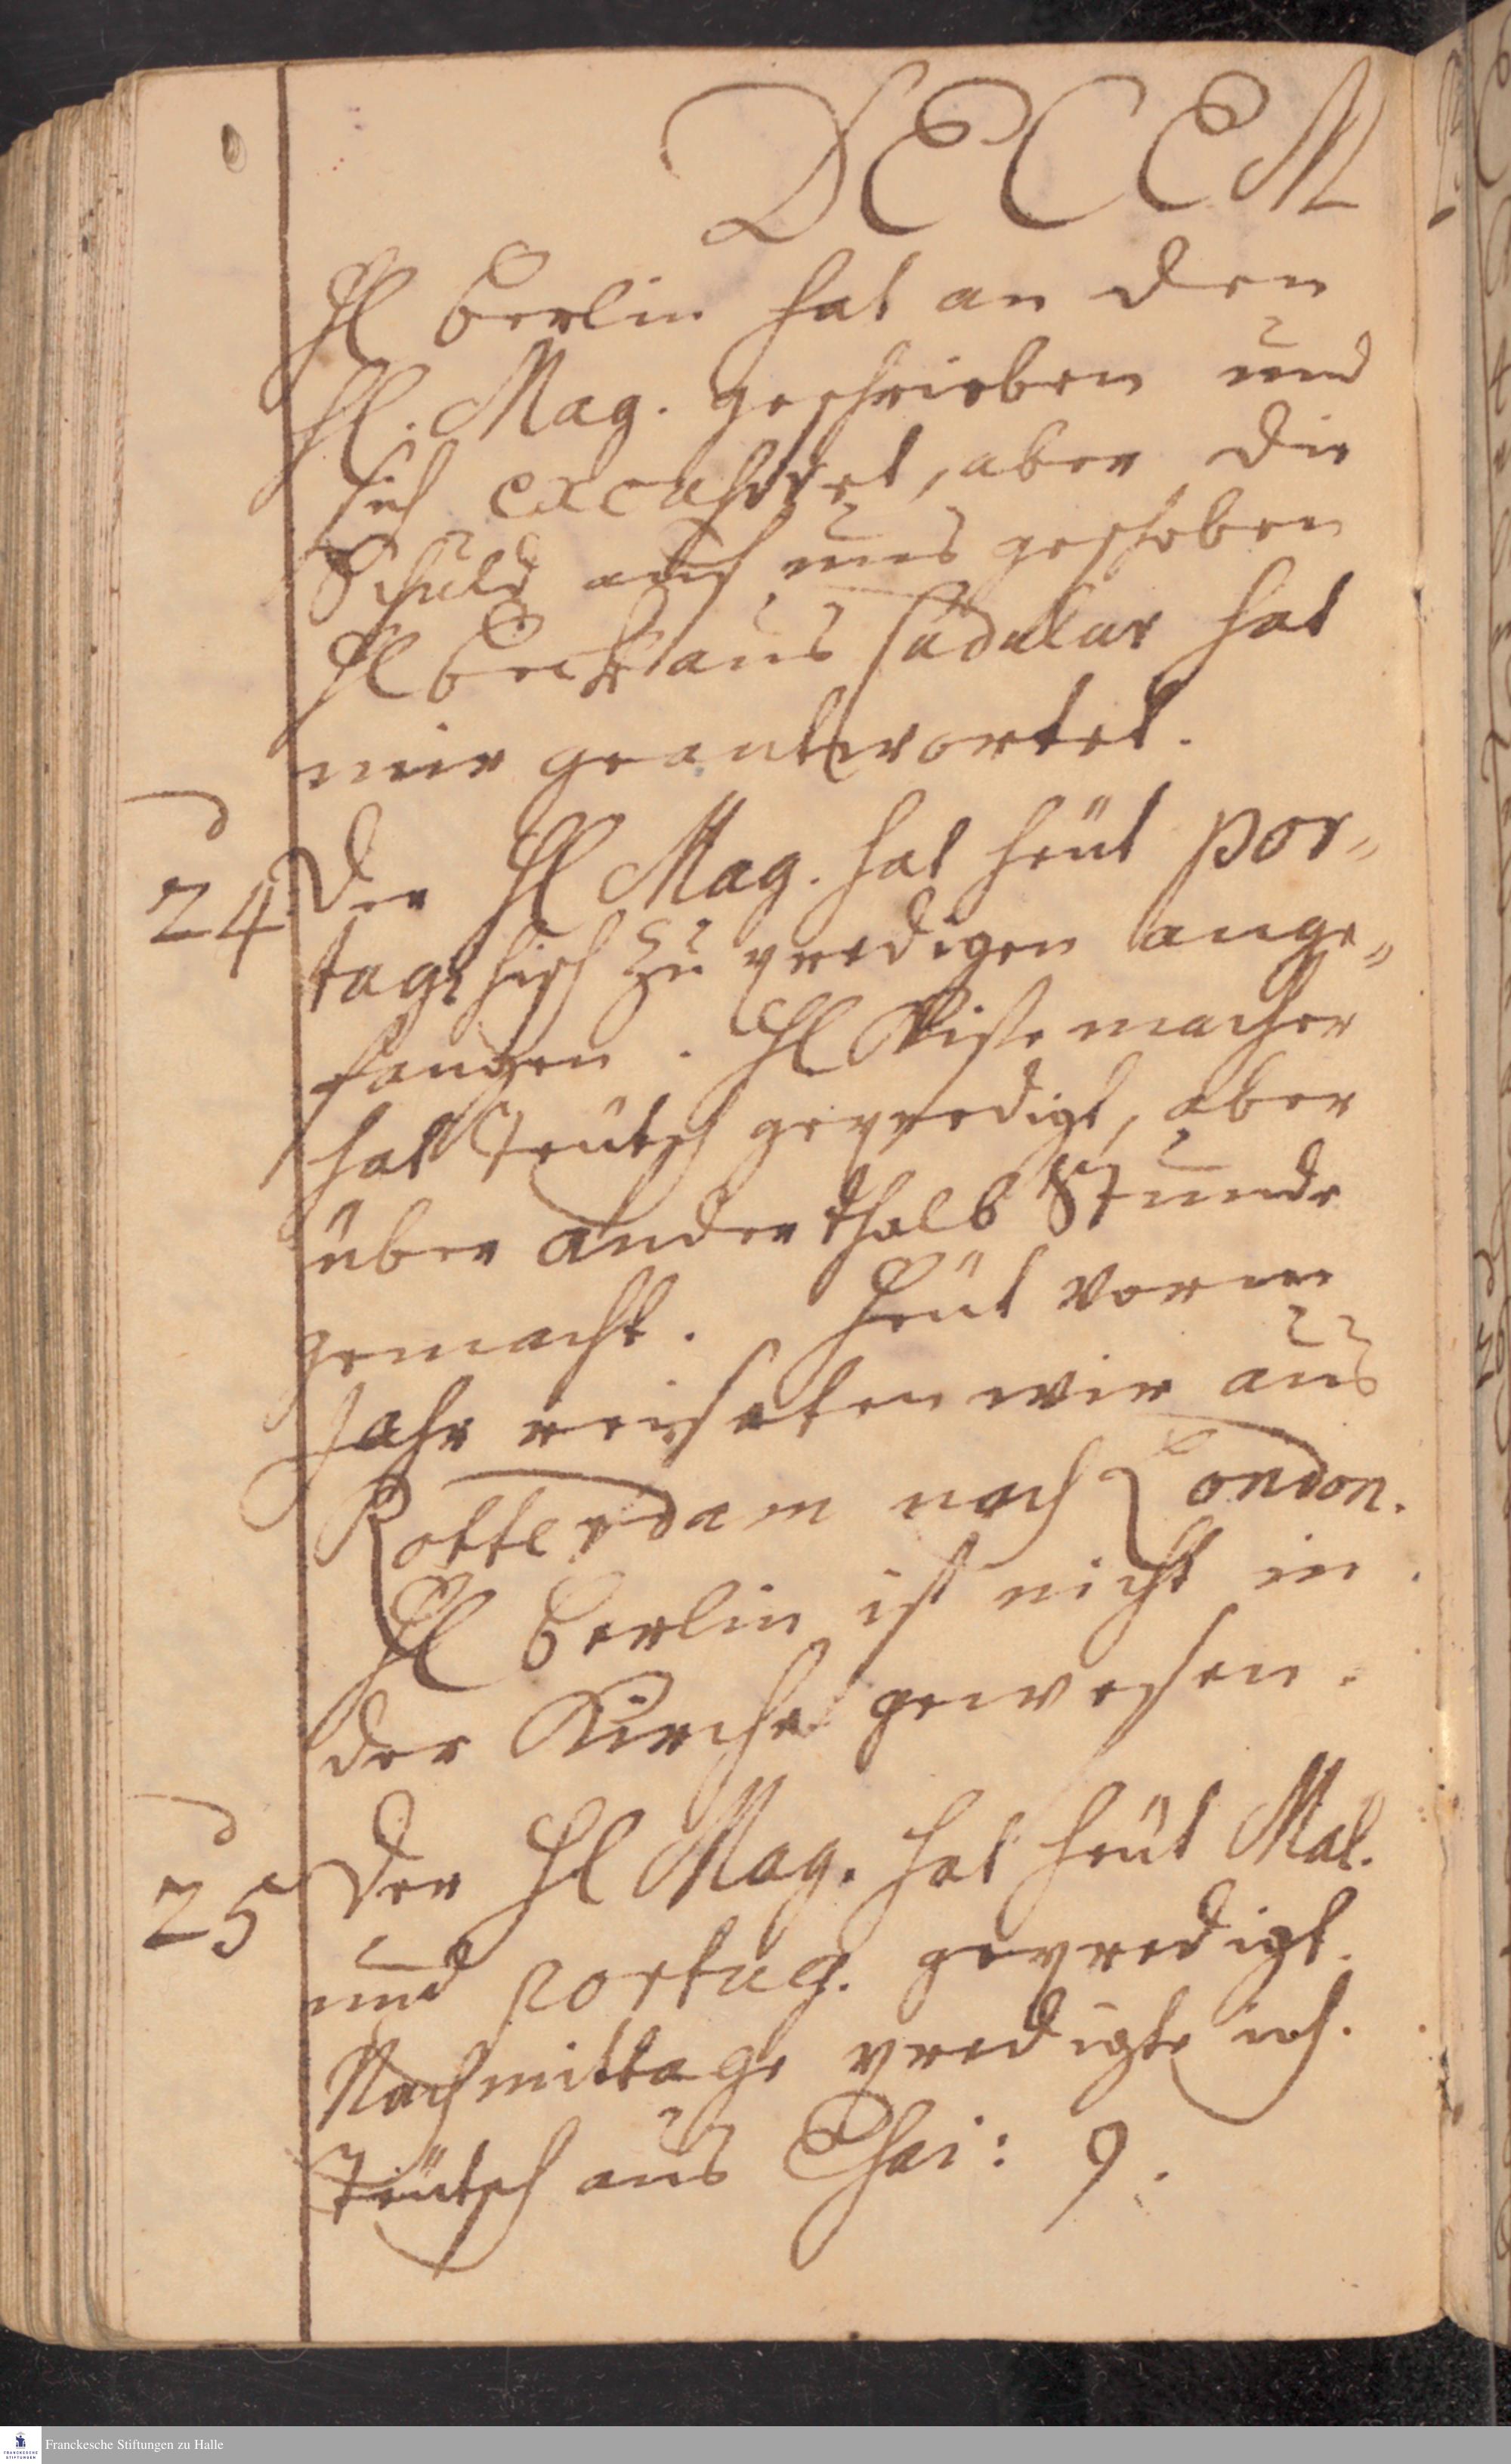 DECEM
Hl Berlin hat an den
Hl. Mag. geschrieben und
sich excusiret, aber die
Schuld auf uns geschoben
Hl Beck aus Sudelur hat
mir geantwortet.
24 Der Hl Mag. hat heüt por„
tugisisch zu predigen ange„
fangen. Hl Wistemacher
hat Teütsch gepredigt, aber
über anderthalb Stunde
gemacht. Heüt vorm
Jahr reiseten wir aus
Rotterdam nach London.
Hl Berlin ist nicht in
der Kirche gewesen.
25 Der Hl Mag. hat heüt Mal.
und portug. gepredigt.
Nachmittage predigte ich.
Teütsch aus Esai: 9.
Franckesche Stiftungen zu Halle